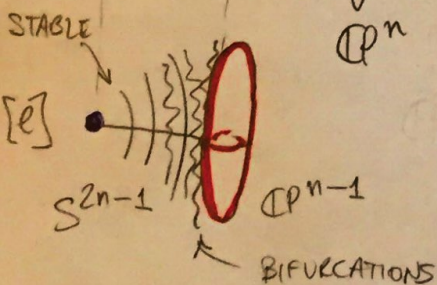 STABLE
ℂPⁿ
[e]
S²ⁿ⁻¹
ℂPⁿ⁻¹
BIFURCATIONS